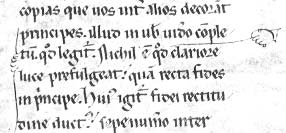 copias que uos int̄ alios decorāt
principes. illud in ub̄ uideo comple
tū. qd̄ legit̄. Nichil ē qd̄ clariore
luce prefulgeat: quā recta fides
in p̄ncipe. Hui᾽ igit̄ fidei rectitu
dine duct᾽: sepenum̄o inter